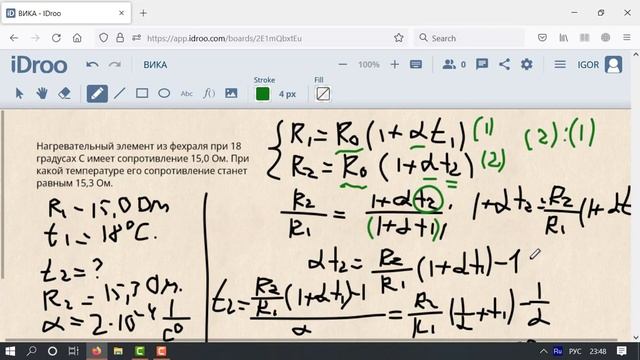 ВИКА – iDroo
https://app.idroo.com/boards/2E1mQbxtEu
iDroo
ВИКА
100%
0
IGOR
Stroke
4 px
Fill
Нагревательный элемент из фехраля при 18
градусах С имеет сопротивление 15,0 Ом. При
какой температуре его сопротивление станет
равным 15,3 Ом.
R₁ - 15,0 Ом
t₁ = 18°C.
t₂ = ?
R₂ = 15,3 Ом.
α = 2·10⁻⁴ 1/C°
R₁ = R₀ (1 + αt₁) (1)
R₂ = R₀ (1 + αt₂) (2)
(2) : (1)
R₂/R₁ = (1+αt₂)/(1+αt₁), 1+αt₂ = R₂/R₁ (1+αt
αt₂ = R₂/R₁ (1+αt₁) - 1
t₂ = (R₂/R₁ (1+αt₁) - 1)/α = R₂/R₁ (1/α + t₁) - 1/α
РУС
23:48